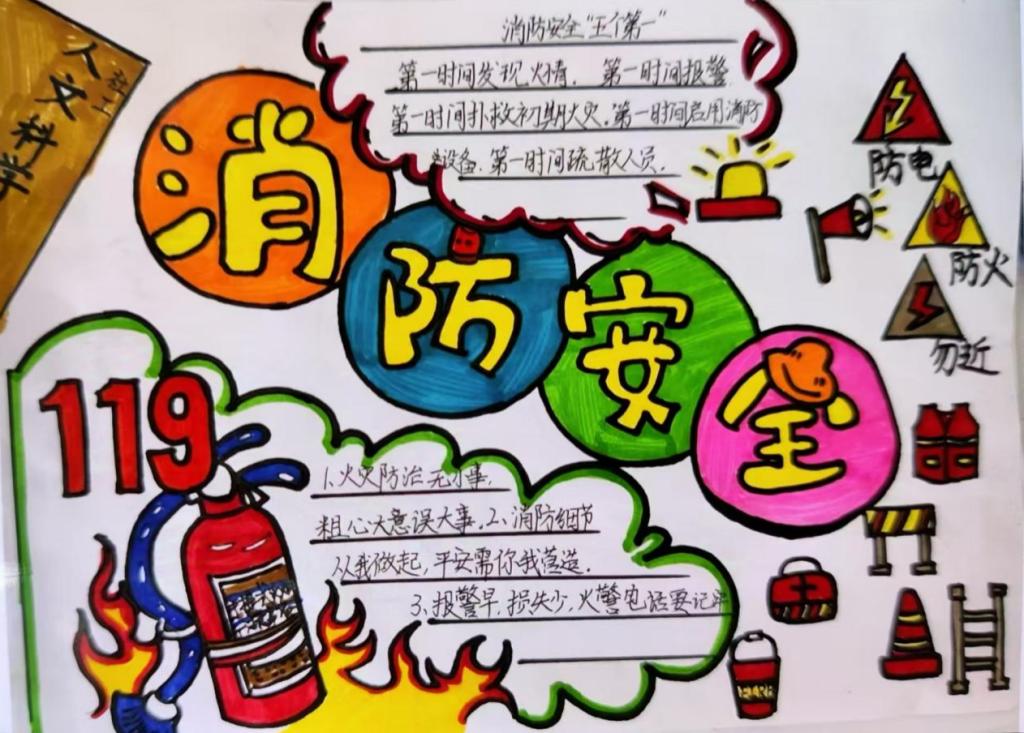 人文科学
社工
消防安全
消防安全"五个第一"
第一时间发现火情. 第一时间报警
第一时间扑救初期火灾.第一时间启用消防
设备.第一时间疏散人员.
防电
防火
勿近
119
1.火灾防治无小事,
粗心大意误大事,2、消防细节
从我做起,平安需你我营造.
3.报警早,损失少,火警电话要记牢